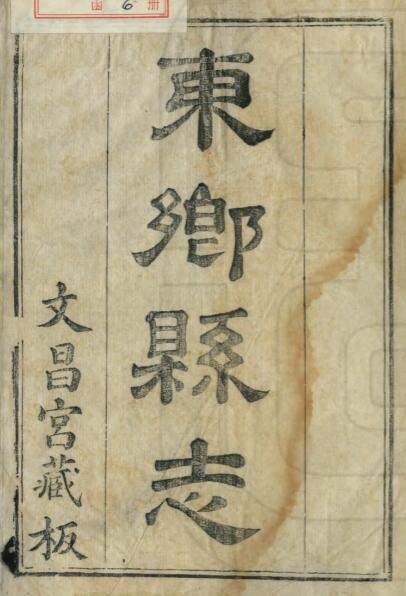 函 6 冊
東鄉縣志
文昌宮藏板